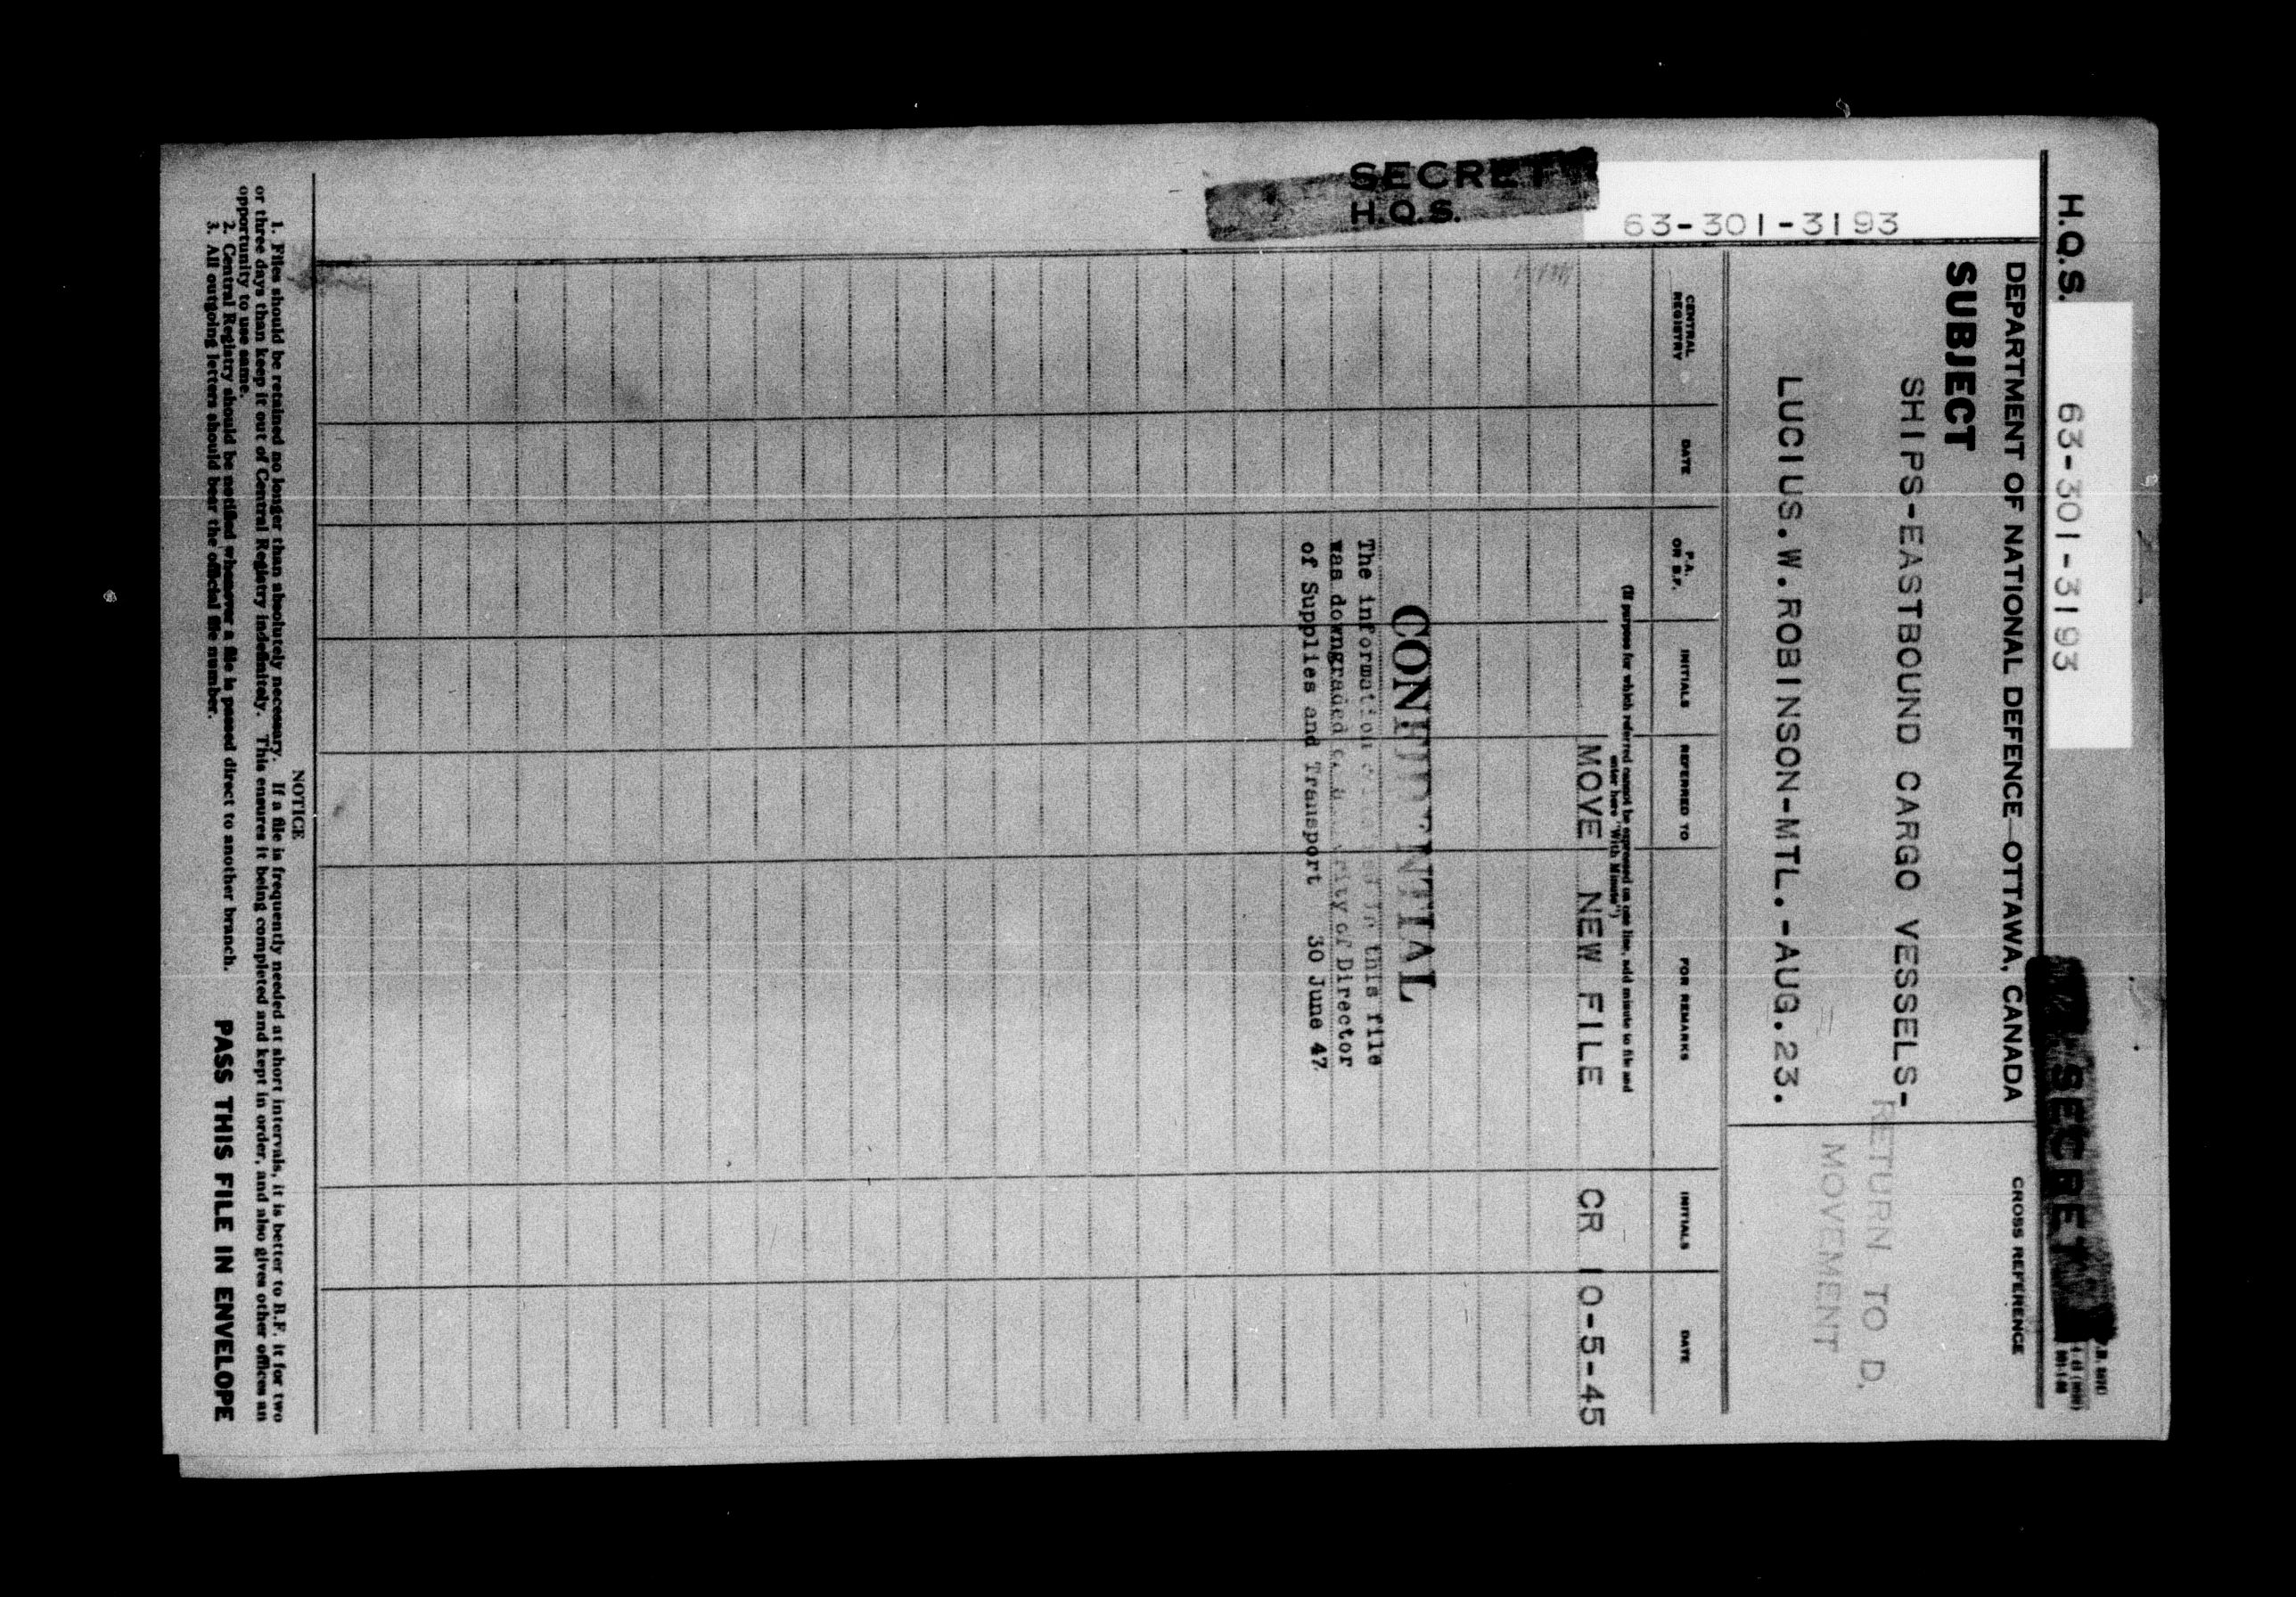 H.Q.S. 63-301-3193
SECRET
DEPARTMENT OF NATIONAL DEFENCE—OTTAWA, CANADA
CROSS REFERENCE
SUBJECT
SHIPS-EASTBOUND CARGO VESSELS-
LUCIUS.W.ROBINSON-MTL.-AUG.23.
RETURN TO D.
MOVEMENT
SECRET
H.Q.S.
63-301-3193
CENTRAL REGISTRY
DATE
P.A. OR B.F.
INITIALS
REFERRED TO
FOR REMARKS
INITIALS
DATE
(If purpose for which referred cannot be expressed on one line, add minute to file and
enter here "With Minute")
MOVE NEW FILE CR 10-5-45
CONFIDENTIAL
The information in this file
was downgraded of Director
of Supplies and Transport 30 June 47
NOTICE
1. Files should be retained no longer than absolutely necessary. If a file is frequently needed at short intervals, it is better to B.F. it for two
or three days than keep it out of Central Registry indefinitely. This ensures it being completed and kept in order, and also gives other offices an
opportunity to use same.
2. Central Registry should be notified whenever a file is passed direct to another branch.
3. All outgoing letters should bear the official file number.
PASS THIS FILE IN ENVELOPE